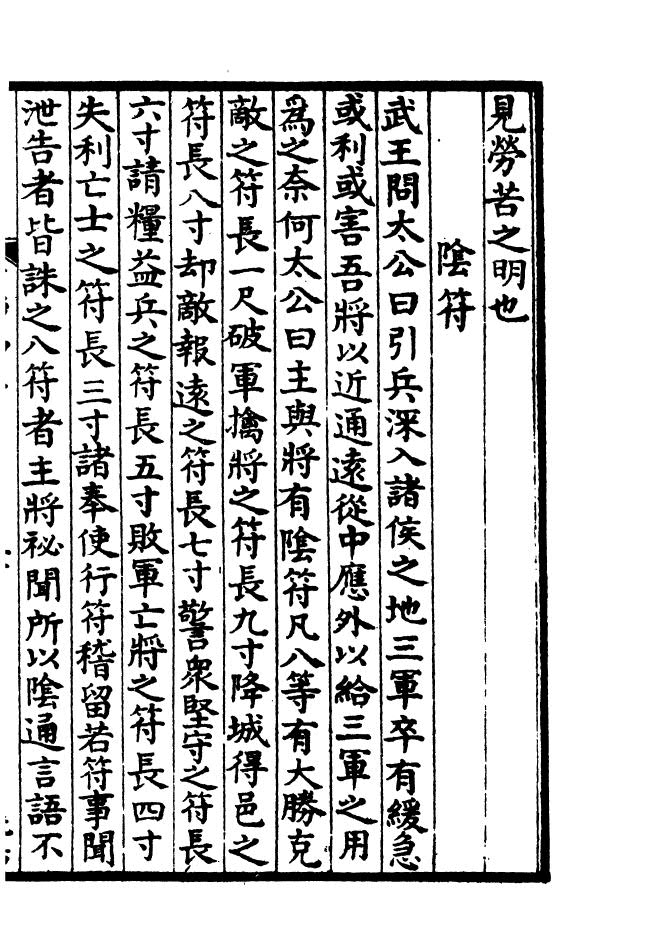 見勞苦之明也
陰符
武王問太公曰引兵深入諸侯之地三軍卒有緩急
或利或害吾將以近通遠從中應外以給三軍之用
爲之奈何太公曰主與將有陰符凡八等有大勝克
敵之符長一尺破軍擒將之符長九寸降城得邑之
符長八寸却敵報遠之符長七寸警衆堅守之符長
六寸請糧益兵之符長五寸敗軍亡將之符長四寸
失利亡士之符長三寸諸奉使行符稽留若符事聞
泄告者皆誅之八符者主將祕聞所以陰通言語不